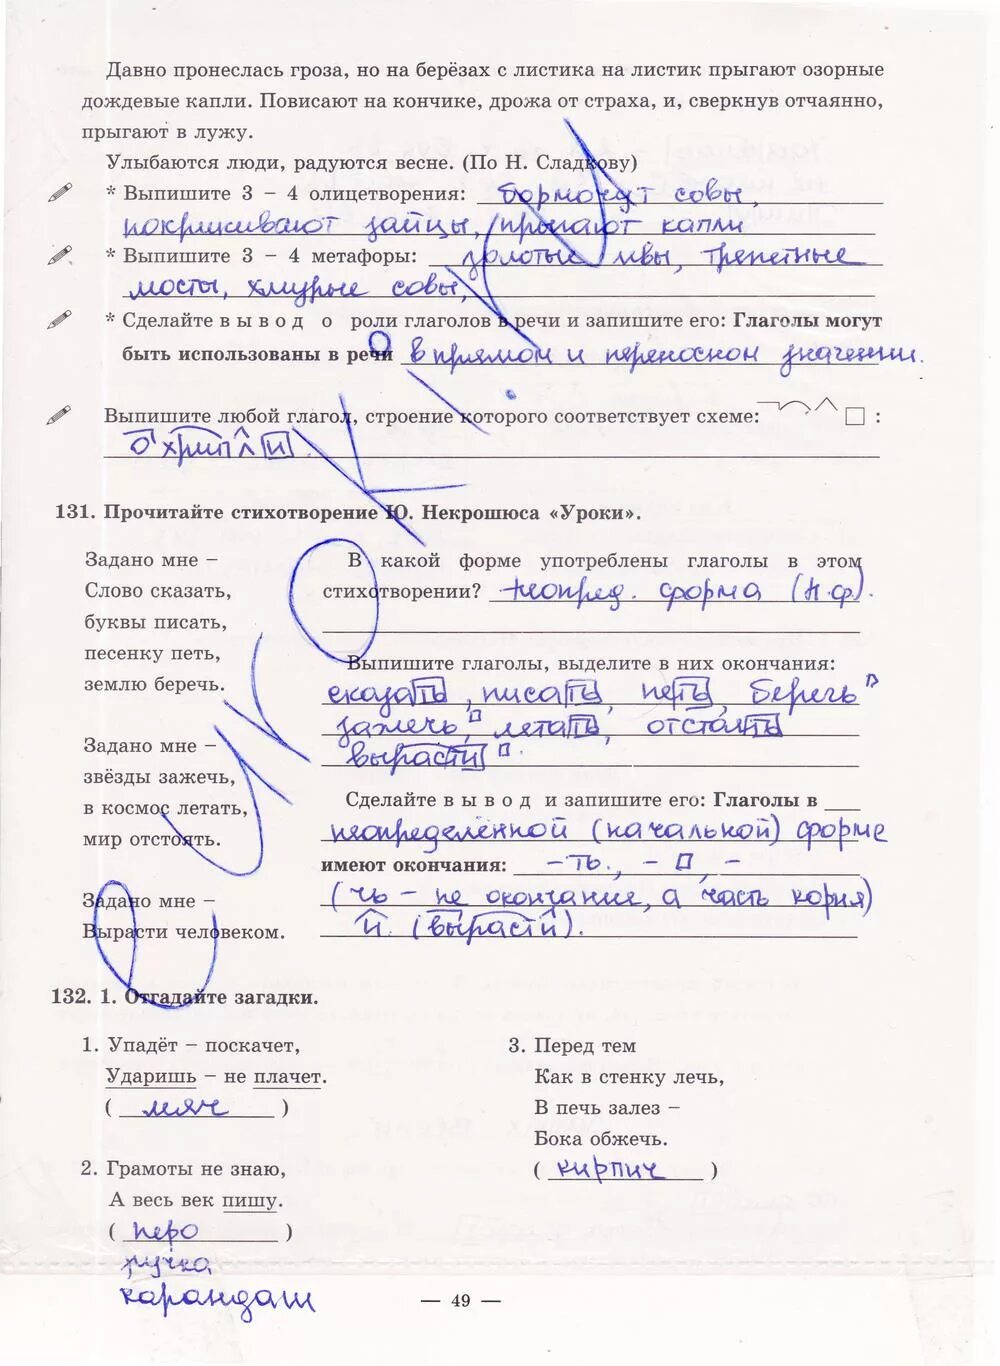 Давно пронеслась гроза, но на берёзах с листика на листик прыгают озорные
дождевые капли. Повисают на кончике, дрожа от страха, и, сверкнув отчаянно,
прыгают в лужу.
Улыбаются люди, радуются весне. (По Н. Сладкову)
* Выпишите 3 – 4 олицетворения: бормочут совы,
покрикивают зайцы, прыгают капли
* Выпишите 3 – 4 метафоры: золотые ивы, трепетные
мосты, хмурые совы,
* Сделайте вывод о роли глаголов в речи и запишите его: Глаголы могут
быть использованы в речи в прямом и переносном значении.
Выпишите любой глагол, строение которого соответствует схеме: :
охрипли.
131. Прочитайте стихотворение Ю. Некрошюса «Уроки».
Задано мне –
Слово сказать,
буквы писать,
песенку петь,
землю беречь.
Задано мне –
звёзды зажечь,
в космос летать,
мир отстоять.
Задано мне –
Вырасти человеком.
В какой форме употреблены глаголы в этом
стихотворении? Неопред. форма (Н.ф).
Выпишите глаголы, выделите в них окончания:
сказать, писать, петь, беречь
зажечь, летать, отстоять
вырасти.
Сделайте вывод и запишите его: Глаголы в
неопределённой (начальной) форме
имеют окончания: -ть, -
(чь – не окончание, а часть корня)
и. (вырасти).
132. 1. Отгадайте загадки.
1. Упадёт – поскачет,
Ударишь – не плачет.
( мяч )
2. Грамоты не знаю,
А весь век пишу.
( перо )
ручка
карандаш
3. Перед тем
Как в стенку лечь,
В печь залез –
Бока обжечь.
( кирпич )
— 49 —